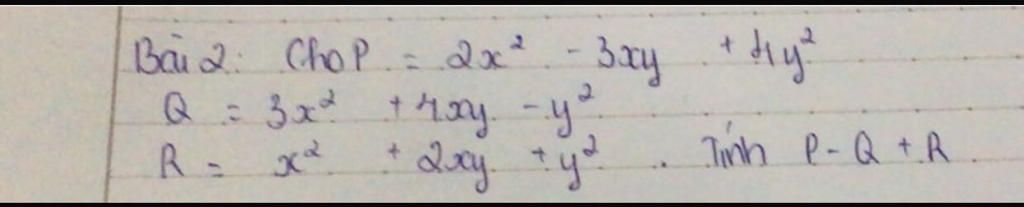 Bài 2: Cho P = 2x² - 3xy + 4y²
Q = 3x² + 4xy - y²
R = x² + 2xy + y². Tính P - Q + R